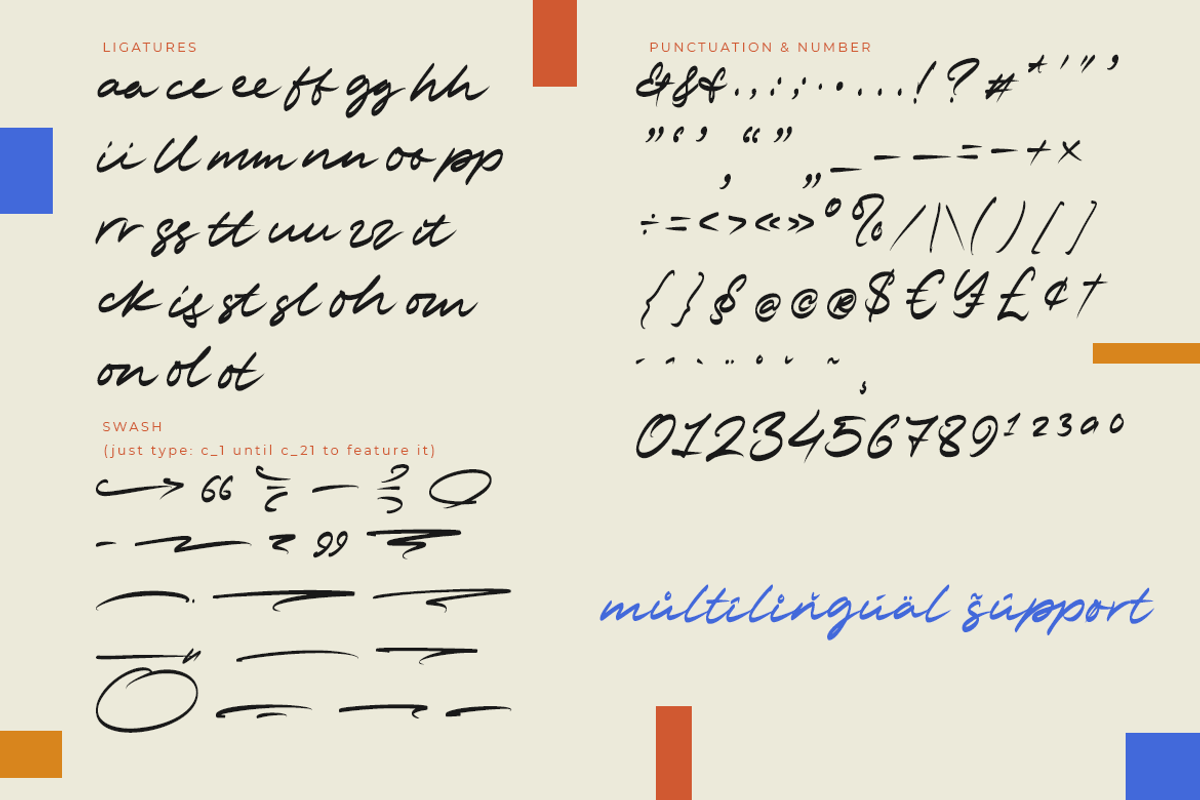 LIGATURES
aa cc ee ff gg hh
ii ll mm nn oo pp
rr ss tt uu zz it
ck is st sl oh om
on ol ot
SWASH
(just type: c_1 until c_21 to feature it)
PUNCTUATION & NUMBER
&&&.,:;·•...!?#*'"’
”‘’‚“”„_–—=-+×
÷=<>«»°%/|\()[]
{}§@©®$€¥£¢†
´ˆ`¨˚ˇ˜¸
0123456789¹²³ªº
můltîliňgúäl s̃ûppört